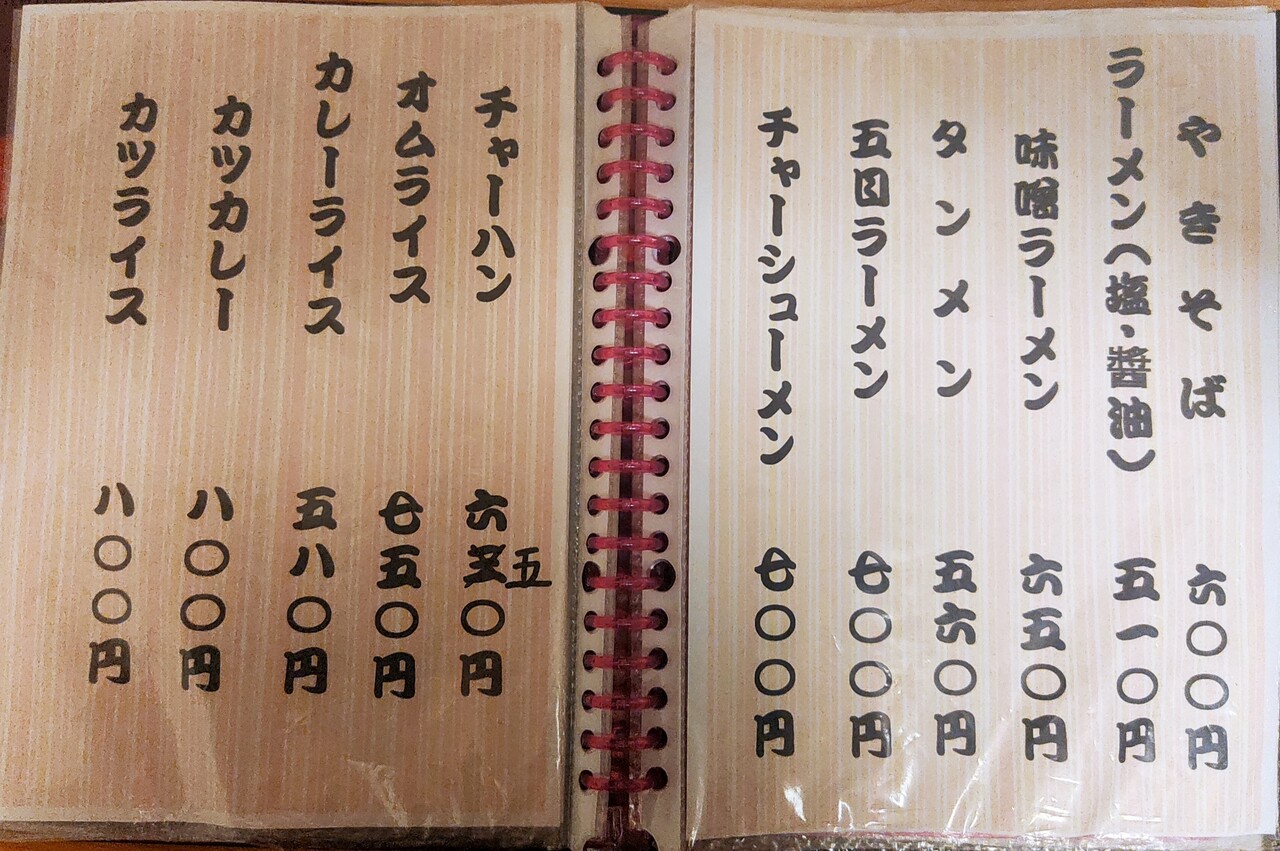 やきそば 六〇〇円
ラーメン（塩・醤油） 五一〇円
味噌ラーメン 六五〇円
タンメン 五六〇円
五目ラーメン 七〇〇円
チャーシューメン 七〇〇円
チャーハン 六五〇円
オムライス 七五〇円
カレーライス 五八〇円
カツカレー 八〇〇円
カツライス 八〇〇円